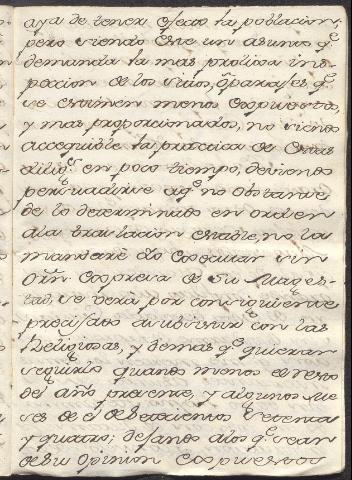 aya de tener efecto la poblacion;
pero siendo este un asunto q.e
demanda la mas prolixa ins-
peccion de los sitios, o parajes q.e
se estimen menos expuestos,
y mas proporcionados, no siendo
accequible la practica de estas
dilig.s en poco tiempo, deviendo
persuadirse a q.e no obstante
de lo determinado en orden
a la traslacion estable, no la
mandará executar sin
Orn expresa de Su Mages-
tad, se verá por consiguiente
precisado a subsistir con las
Religiosas, y demas q.e quieran
seguirlo quando menos el resto
del año presente, y algunos me-
ses de el de setecientos setenta
y quatro; dejando a los q.e sean
de su opinion expuestos